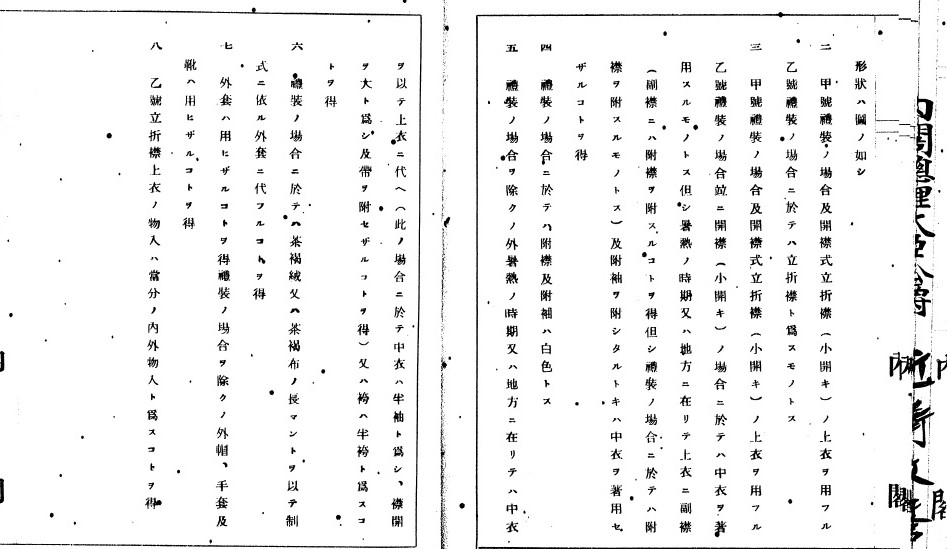 内閣總理大臣公爵 近衞文麿
形狀ハ圖ノ如シ
二 甲號禮裝ノ場合及開襟式立折襟(小開キ)ノ上衣ヲ用フル
乙號禮裝ノ場合ニ於テハ立折襟ト爲スモノトス
三 甲號禮裝ノ場合及開襟式立折襟(小開キ)ノ上衣ヲ用フル
乙號禮裝ノ場合竝ニ開襟(小開キ)ノ場合ニ於テハ中衣ヲ著
用スルモノトス但シ暑熱ノ時期又ハ地方ニ在リテ上衣ニ副襟
(副襟ニハ附襟ヲ附スルコトヲ得但シ禮裝ノ場合ニ於テハ附
襟ヲ附スルモノトス)及附袖ヲ附シタルトキハ中衣ヲ著用セ
ザルコトヲ得
四 禮裝ノ場合ニ於テハ附襟及附袖ハ白色トス
五 禮裝ノ場合ヲ除クノ外暑熱ノ時期又ハ地方ニ在リテハ中衣
ヲ以テ上衣ニ代ヘ(此ノ場合ニ於テ中衣ハ半袖ト爲シ、襟開
ヲ大ト爲シ及帶ヲ附セザルコトヲ得)又ハ袴ハ半袴ト爲スコ
トヲ得
六 禮裝ノ場合ニ於テハ茶褐絨又ハ茶褐布ノ長マントヲ以テ制
式ニ依ル外套ニ代フルコトヲ得
七 外套ハ用ヒザルコトヲ得禮裝ノ場合ヲ除クノ外帽、手套及
靴ハ用ヒザルコトヲ得
八 乙號立折襟上衣ノ物入ハ當分ノ內外物入ト爲スコトヲ得